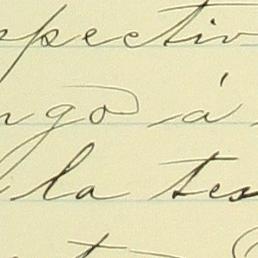 spectiv
ngo á
la tes